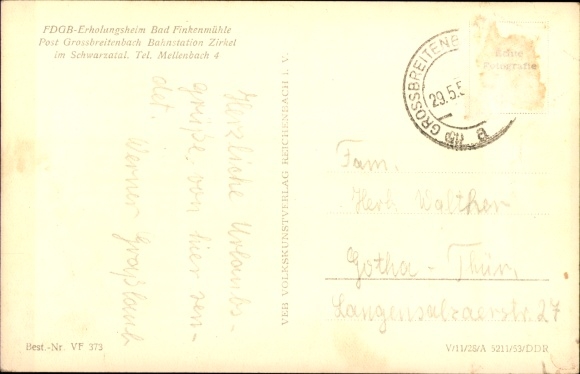 FDGB-Erholungsheim Bad Finkenmühle
Post Grossbreitenbach Bahnstation Zirkel
im Schwarzatal. Tel. Mellenbach 4
Herzliche Urlaubs-
grüße von hier sen-
det. Werner
VEB VOLKSKUNSTVERLAG REICHENBACH I. V.
GROSSBREITENB
29.5.5
a
Echte
Fotografie
Fam.
Herb Walther
Gotha - Thür.
Langensalzaerstr. 27
Best.-Nr. VF 373
V/11/28/A 5211/53/DDR